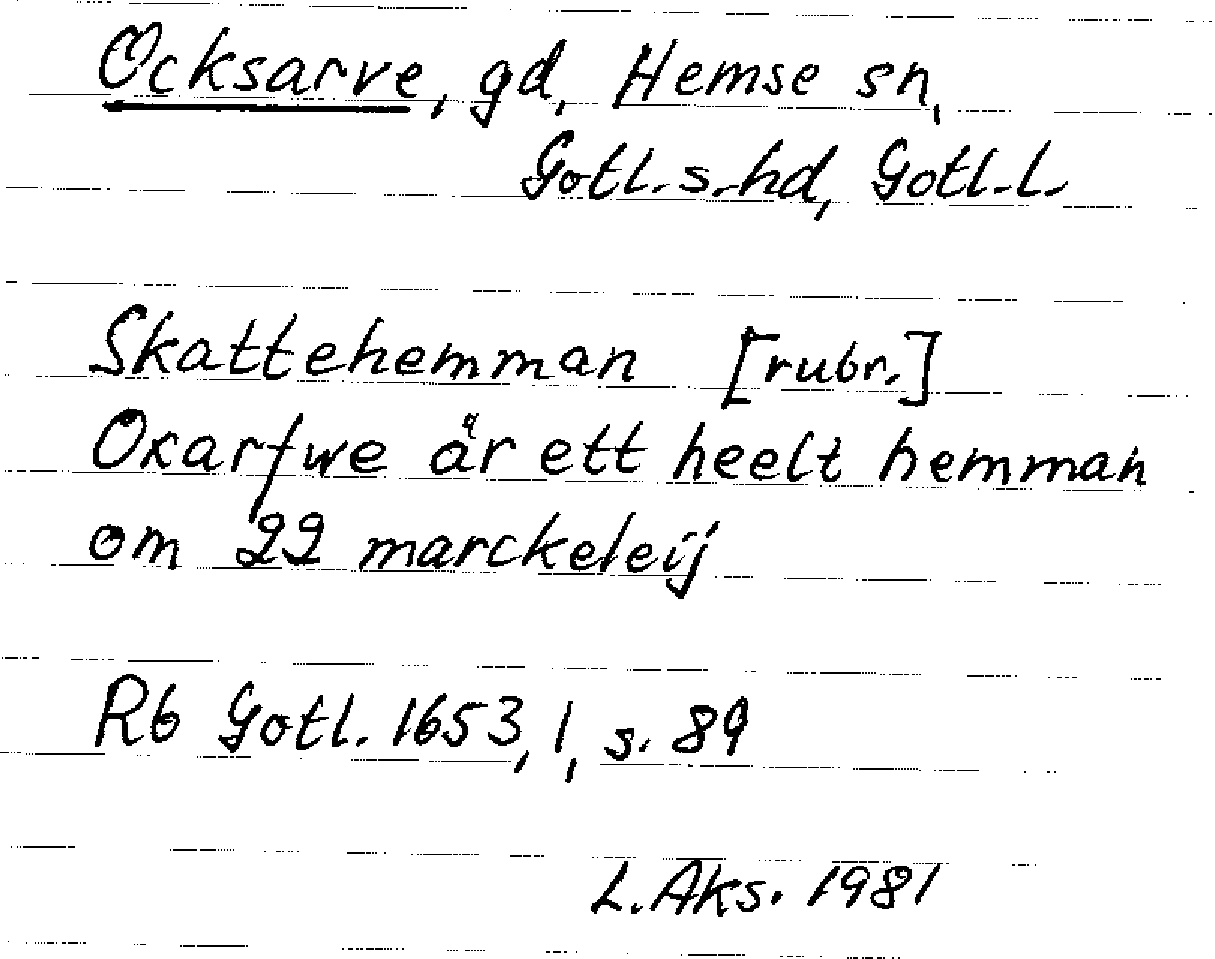 Ocksarve, gd, Hemse sn,
Gotl. s. hd, Gotl. l.
Skattehemman [rubr.]
Oxarfwe är ett heelt hemman
om 22 marckeleij
Rb Gotl. 1653, 1, s. 89
L. Aks. 1981